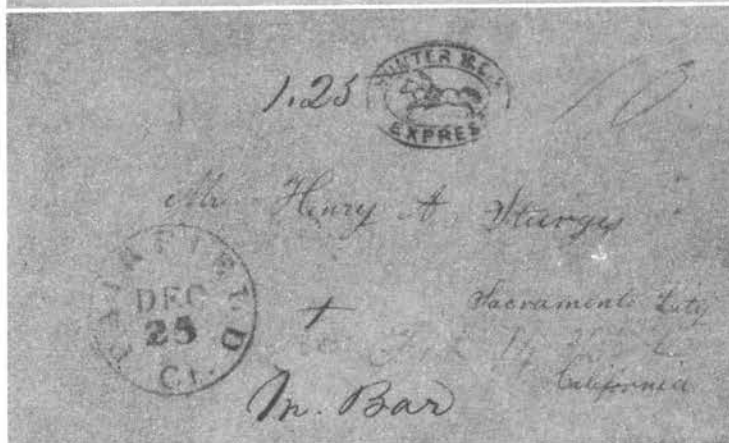 1.25
HUNTER & Co's
EXPRESS
10.
Mr Henry A. Sturges
FAIRFIELD
DEC
25
Ct.
Sacramento City
California
M. Bar